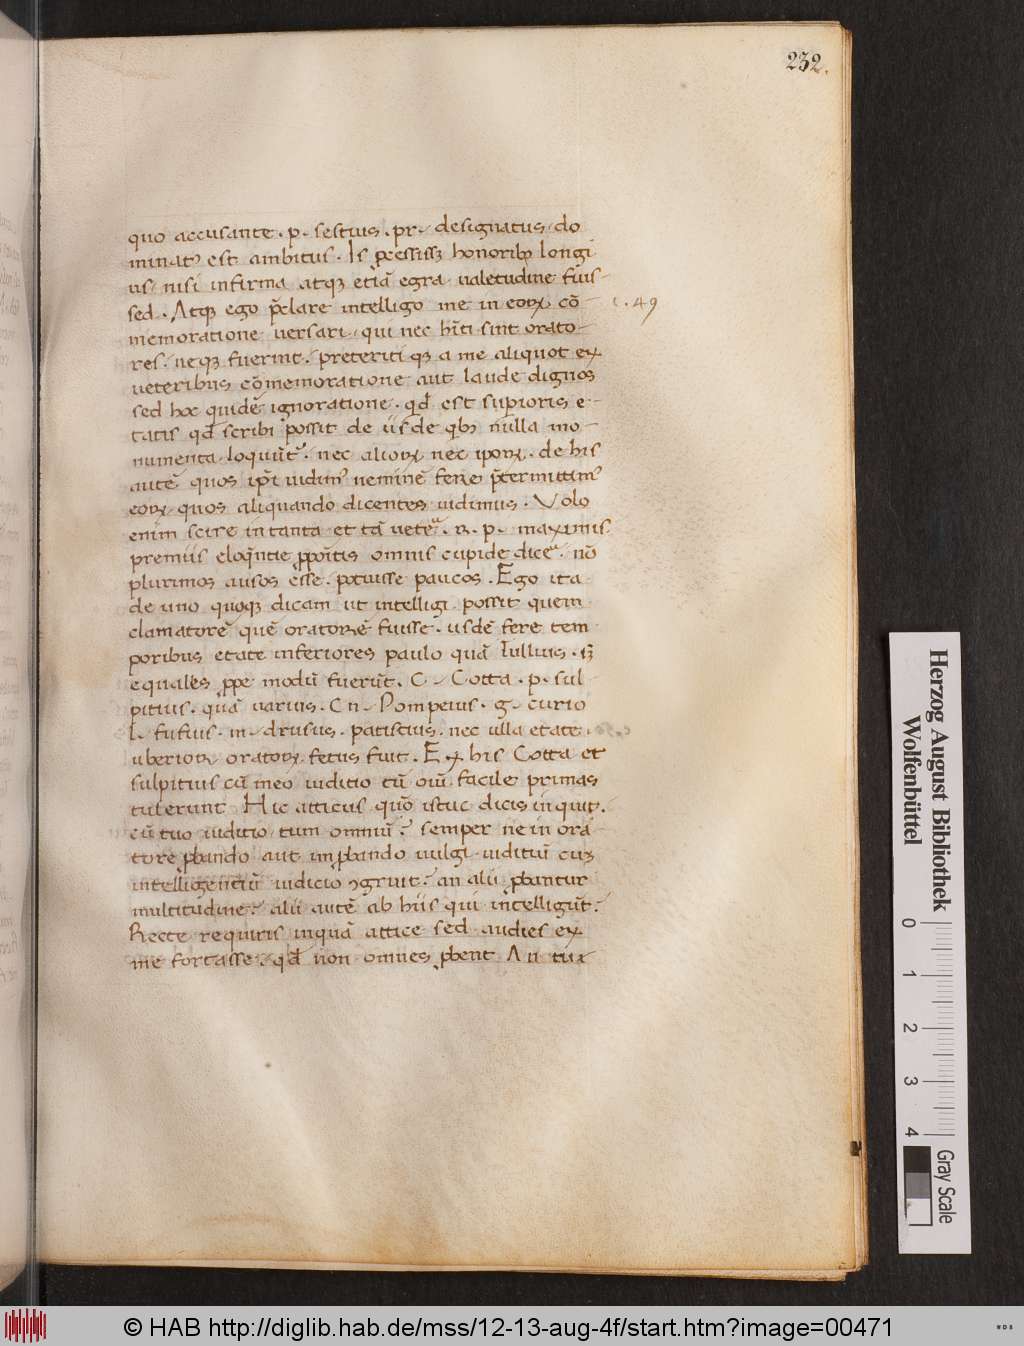 232.
quo accusante . p . sestius . pr . designatus . do
minatꝰ est ambitus . Is ꝓcessissꝫ honoribꝫ longi
us . nisi infirma atqꝫ etiā egra valetudine fuis-
sed . Atqꝫ ego p̄clare intelligo me in eorꝝ cō-
c. 49
memoratione versari . qui nec hīti sint orato-
res . neqꝫ fuerint . preteriti qꝫ a me aliquot ex
veteribus cōmemoratione aut laude dignos
sed hoc quidē ignoratione . qd̄ est supioris e-
tatis qd̄ scribi possit de iis de qbꝫ nulla mo-
numenta loquūtᷣ . nec aliorꝝ nec ipōrꝝ . de his
autē quos ip̄i vidimꝰ neminē fere p̄termittimꝰ
eorꝝ quos aliquando dicentes vidimus . Volo
enim scire in tanta et tā veteᷓ . r . p . maximis
premiis eloq̄ntie ꝓpoītis omnis cupide diceᷓ . nō
plurimos ausos ēsse . potuisse paucos . Ego ita
de uno quoqꝫ dicam ut intelligi possit quem
clamatorē quē oratorē fuisse . iisdē fere tem
poribus etate inferiores paulo quā Iullius . ꝫ
equales ꝓpe modū fuerūt . C . Cotta . p . sul-
pitius . quā varius . Cn . Pompeius . g . curio
l . fufius . m . drusus . patistius . nec ulla etate .
uberiorꝝ oratorꝝ fetus fuit . Ex his Cotta et
sulpitius cū meo iuditio tū oīū facile primas
tulerunt Hic atticus quō istuc dicis inquit .
cū tuo iuditio tum omniū ? semper ne in ora-
tore ꝓbando aut imꝓbando vulgi iuditiū cuꝫ
intelligentiū iudicio ꝯgruit ? an alii ꝓbantur
multitudine ? alii autē ab hiis qui intelligūt ?
Recte requiris inquā attice sed audies ex
me fortasse . qd̄ non omnes ꝓbent An tu x
Herzog August Bibliothek
Wolfenbüttel
0 1 2 3 4
Gray Scale
© HAB http://diglib.hab.de/mss/12-13-aug-4f/start.htm?image=00471